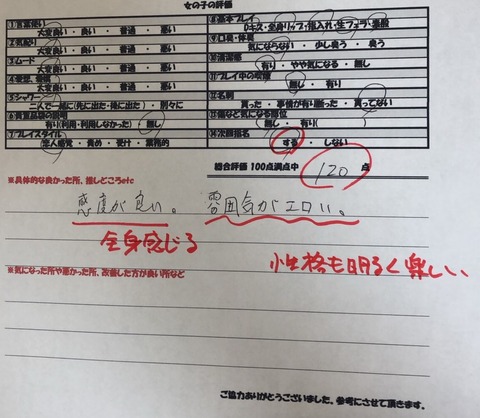 女の子の評価
①言葉使い
大変良い・良い・普通・悪い
②気配り
大変良い・良い・普通・悪い
③ムード
大変良い・良い・普通・悪い
大変良い・良い・普通・悪い
⑤シャワー
二人で一緒に(先に出た・後に出た)・別々に
有り(利用・利用しなかった)・無し
⑦プレイスタイル
恋人感覚・責め・受け・業務的
⑧基本プレイ
Dキス・全身リップ・指入れ・生フェラ・素股
⑨口臭・体臭
気にならない・少し臭う・臭う
⑩清潔感
有り・やや気になる・無し
⑪プレイ中の会話
無し・有り
⑫名刺
貰った・事情が有り断った・貰ってない
⑬傷など気になる部位
無し・有り
⑭次回指名
する・しない
総合評価 100点満点中 120 点
※具体的な良かった所、推しどころetc
感度が良い。 雰囲気がエロい。
全身感じる
性格も明るく楽しい
※気になった所や悪かった所、改善した方が良い所など
ご協力ありがとうございました。参考にさせて頂きます。